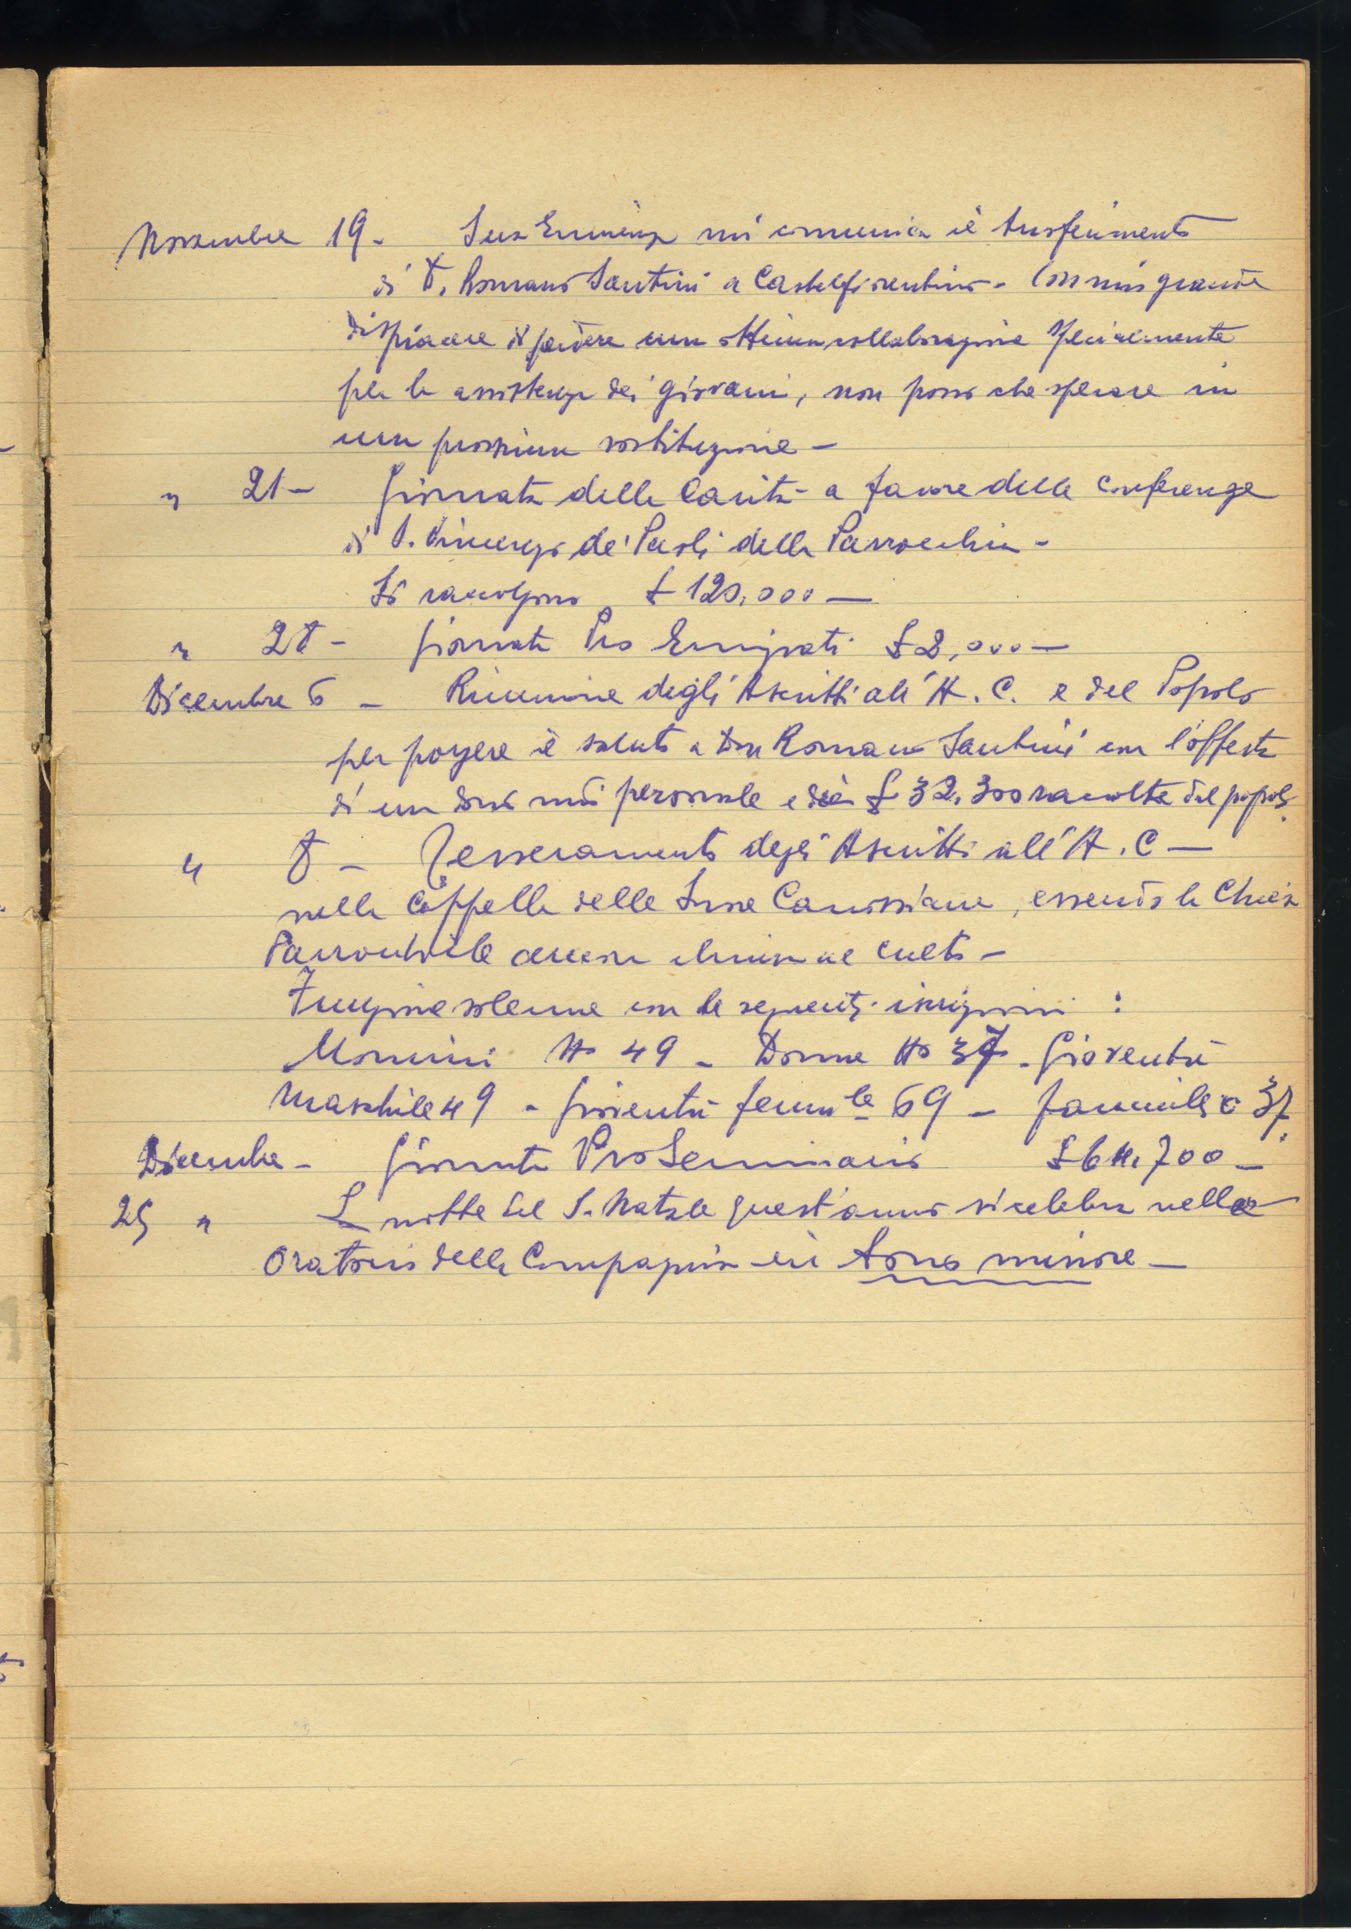 Novembre 19 - Sua Eminenza mi comunica il trasferimento
di D. Romano Santini a Castelfiorentino - Con mio grande
dispiacere di perdere una ottima collaborazione specialmente
per la assistenza dei giovani, non posso che sperare in
una prossima sostituzione -
" 21 - Giornata della Carità - a favore della conferenza
di S. Vincenzo de' Paoli della Parrocchia -
Si raccolgono £ 120.000 -
" 28 - Giornata Pro Emigrati £ 8.000 -
Dicembre 6 - Riunione degli Ascritti all'A.C. e del Popolo
per porgere il saluto a Don Romano Santini con l'offerta
di un dono mio personale e di £ 32.300 raccolte dal popolo.
" 8 - Tesseramento degli Ascritti all'A.C -
nella Cappella delle Suore Canossiane, essendo la Chiesa
Parrocchiale ancora chiusa al culto -
Funzione solenne con le seguenti iscrizioni :
Uomini No 49 - Donne No 37 - Gioventù
Maschile 49 - Gioventù femm.le 69 - 37.
Dicembre - Giornata Pro Seminario £ 64.700 -
25 " La notte del S. Natale quest'anno si celebra nella
Oratorio della Compagnia in tono minore -